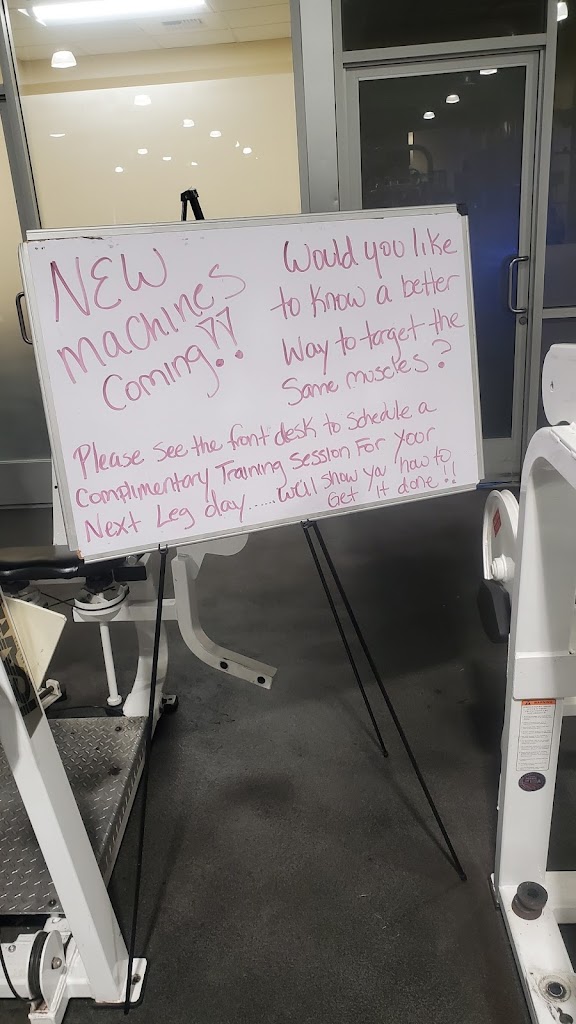 NEW
machines
Coming!!
Would you like
to Know a better
Way to target the
Same muscles?
Please see the front desk to schedule a
Complimentary Training Session For your
Next Leg day......we'll show ya' how to
Get it done!!